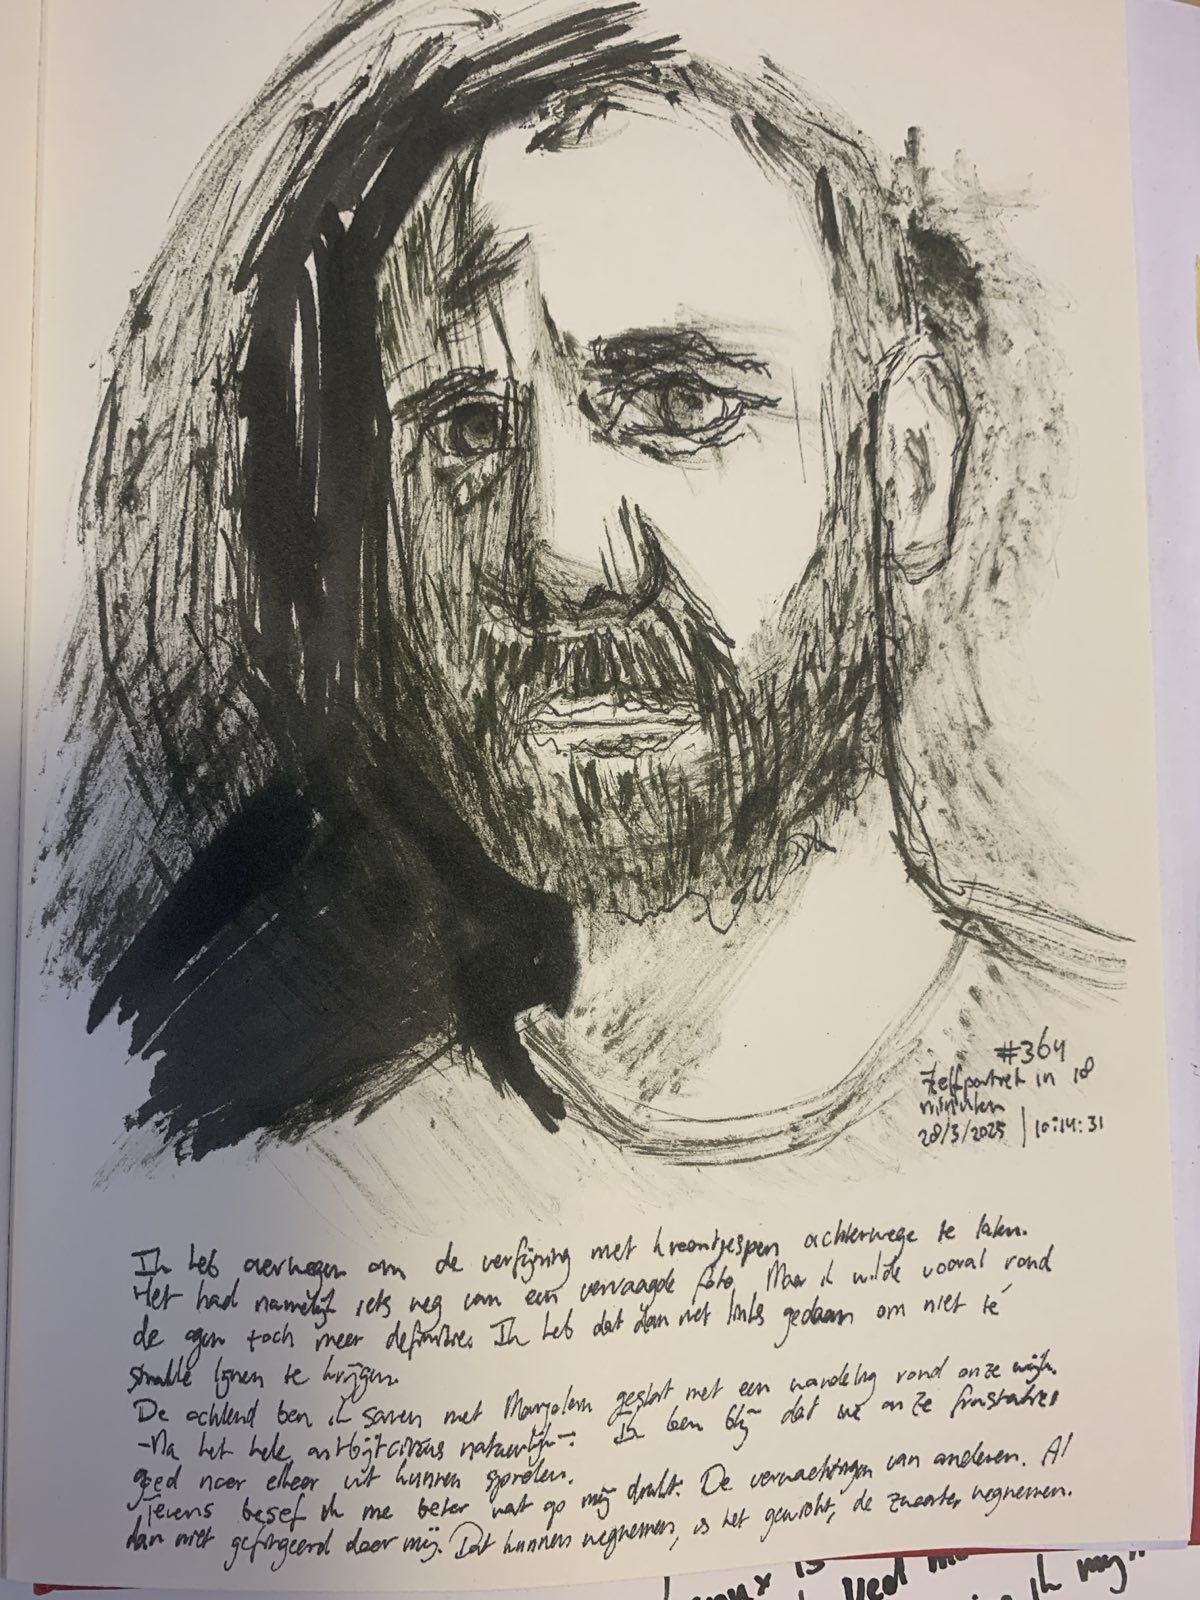 #364
Zelfportret in 18
minuten
28/3/2025 | 10:14:31
Ik heb overwogen om de verfijning met kroontjespen achterwege te laten.
Het had namelijk iets weg van een vervaagde foto. Maar ik wilde vooral rond
de ogen toch meer definitie. Ik heb dat dan met links gedaan om niet té
strakke lijnen te krijgen.
De ochtend ben ik samen met Marjolein gestart met een wandeling rond onze wijk.
-Na het hele ontbijtcircus natuurlijk-. Ik ben blij dat we onze frustraties
goed naar elkaar uit kunnen spreken.
Tevens besef ik me beter wat op mij drukt. De verwachtingen van anderen. Al
dan niet gefingeerd door mij. Dat kunnen wegnemen, is het gewicht, de zwaarte, wegnemen.
is
ik mij